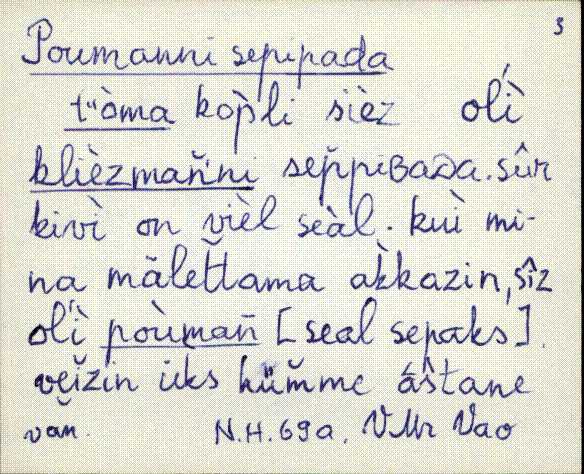 3
Poumanni sepipada
t"òma kop̀li sièz olì
klièzmañ'ni sep̌piʙaᴅa. sûr
kivì on vièl seàl. kuì mi-
na mäletťama ak̀kazin, sîz
olì poùmañ [seal sepaks].
veǐzin üks küm̆me áštane
vǎn. N.H. 69 a. VMr Vao